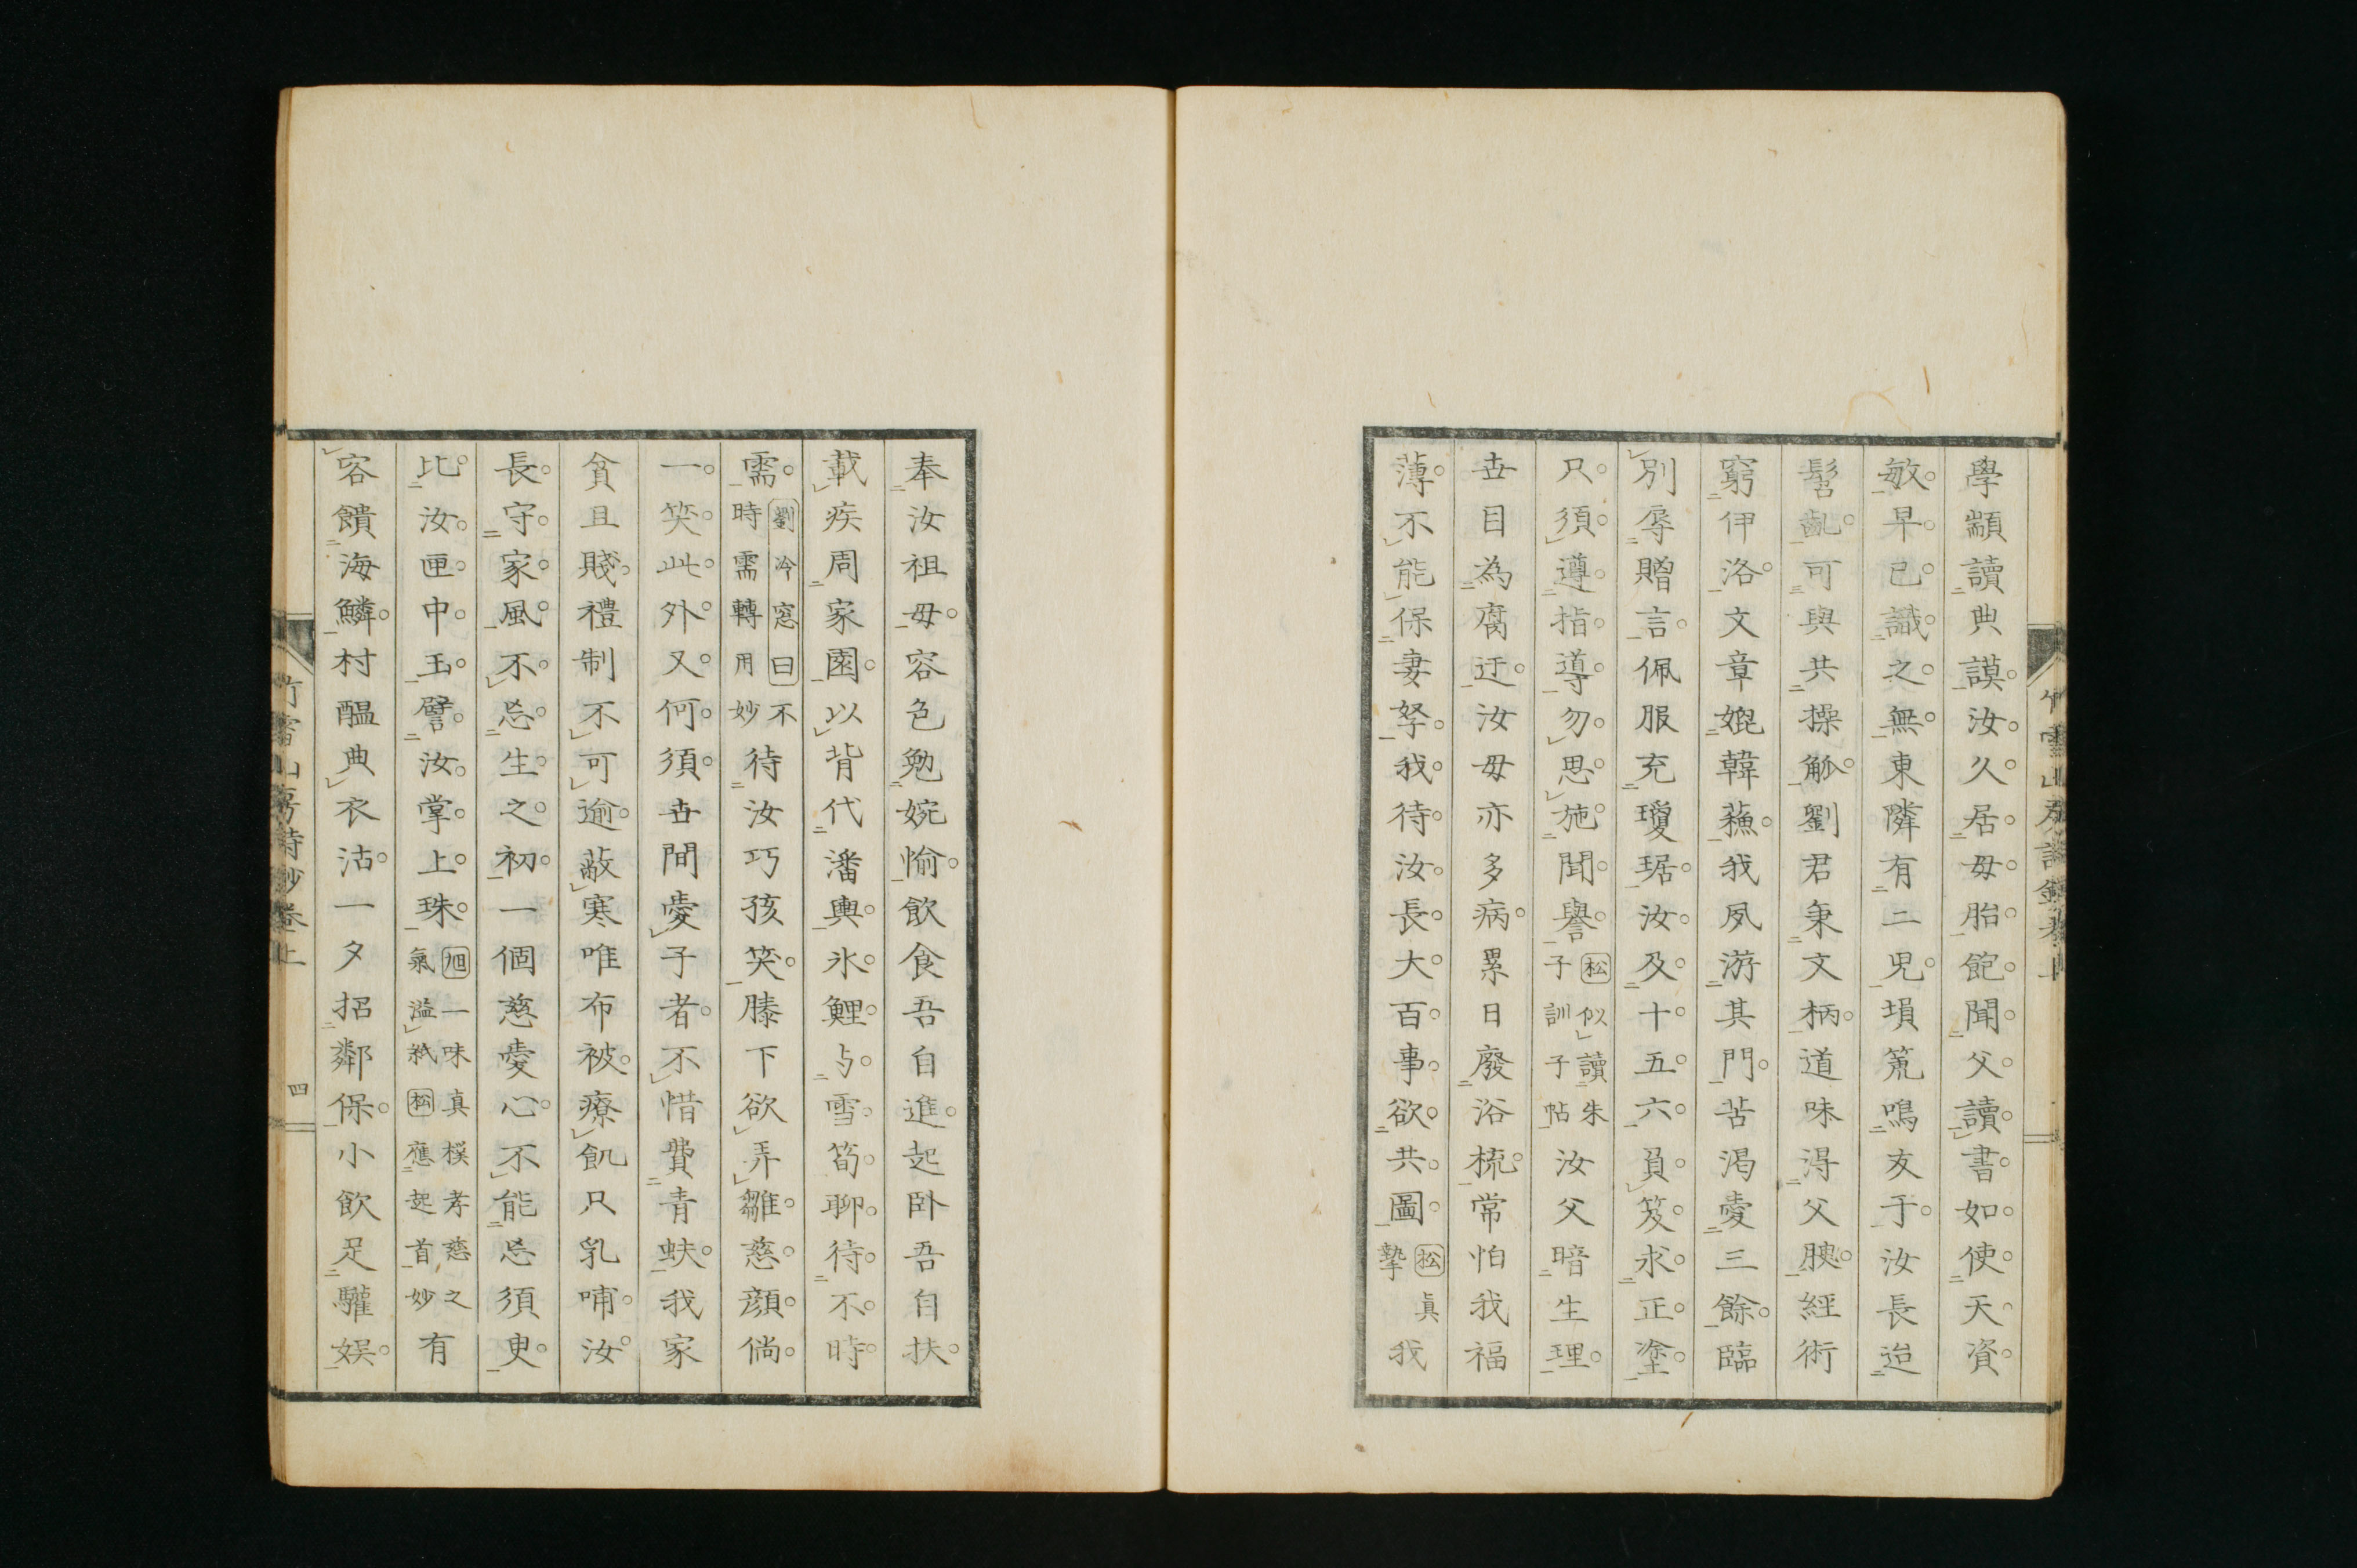 學顓讀典謨汝久居母胎飽聞父讀書如使天資
敏早已識之無東隣有二児塤箎鳴友于汝長迨
髫齓可與共操觚劉君秉文柄道味淂父腴經術
窮伊洛文章媲韓蘓我夙游其門苦渇愛三餘臨
別辱贈言佩服充瓊琚汝及十五六負笈求正塗
只須遵指導勿思施聞譽
松似讀朱
子訓子帖
汝父暗生理
世目為腐迂汝母亦多病累日廢浴梳常怕我福
薄不能保妻孥我待汝長大百事欲共圖
松真
摯
我
奉汝祖母容色勉婉愉飲食吾自進起卧吾自扶
載疾周家園以背代潘輿氷鯉与雪筍聊待不時
需
劉冷窓曰不
時需轉用妙
待汝巧孩笑膝下欲弄雛慈顔倘
一笑此外又何須世間愛子者不惜費青蚨我家
貧且賤禮制不可逾蔽寒唯布被療飢只乳哺汝
長守家風不忘生之初一個慈愛心不能忘須臾
比汝匣中玉譬汝掌上珠
旭一味真樸孝慈之
氣溢紙松應起首妙
有
容饋海鱗村醞典衣沽一夕招鄰保小飲足驩娯
四